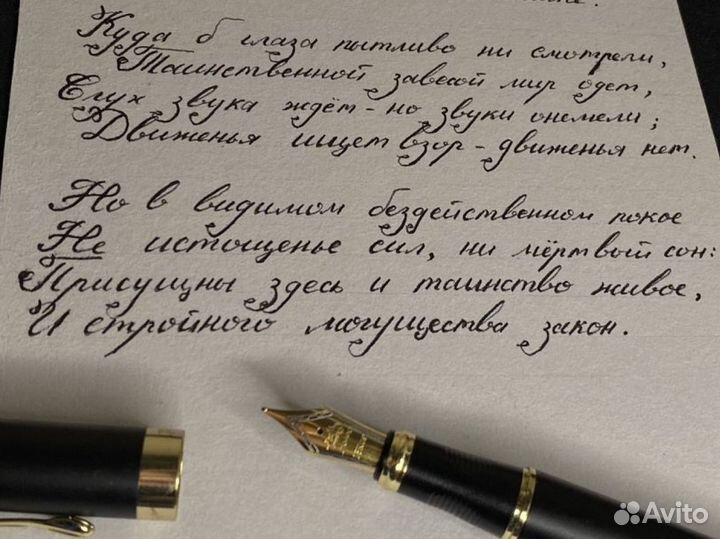 Куда б глаза пытливо ни смотрели,
Таинственной завесой мир одет,
Слух звука ждёт - но звуки онемели;
Движенья ищет взор - движенья нет.
Но в видимом бездейственном покое
Не истощенье сил, ни мёртвый сон:
Присущны здесь и таинство живое,
И стройного могущества закон.
Avito